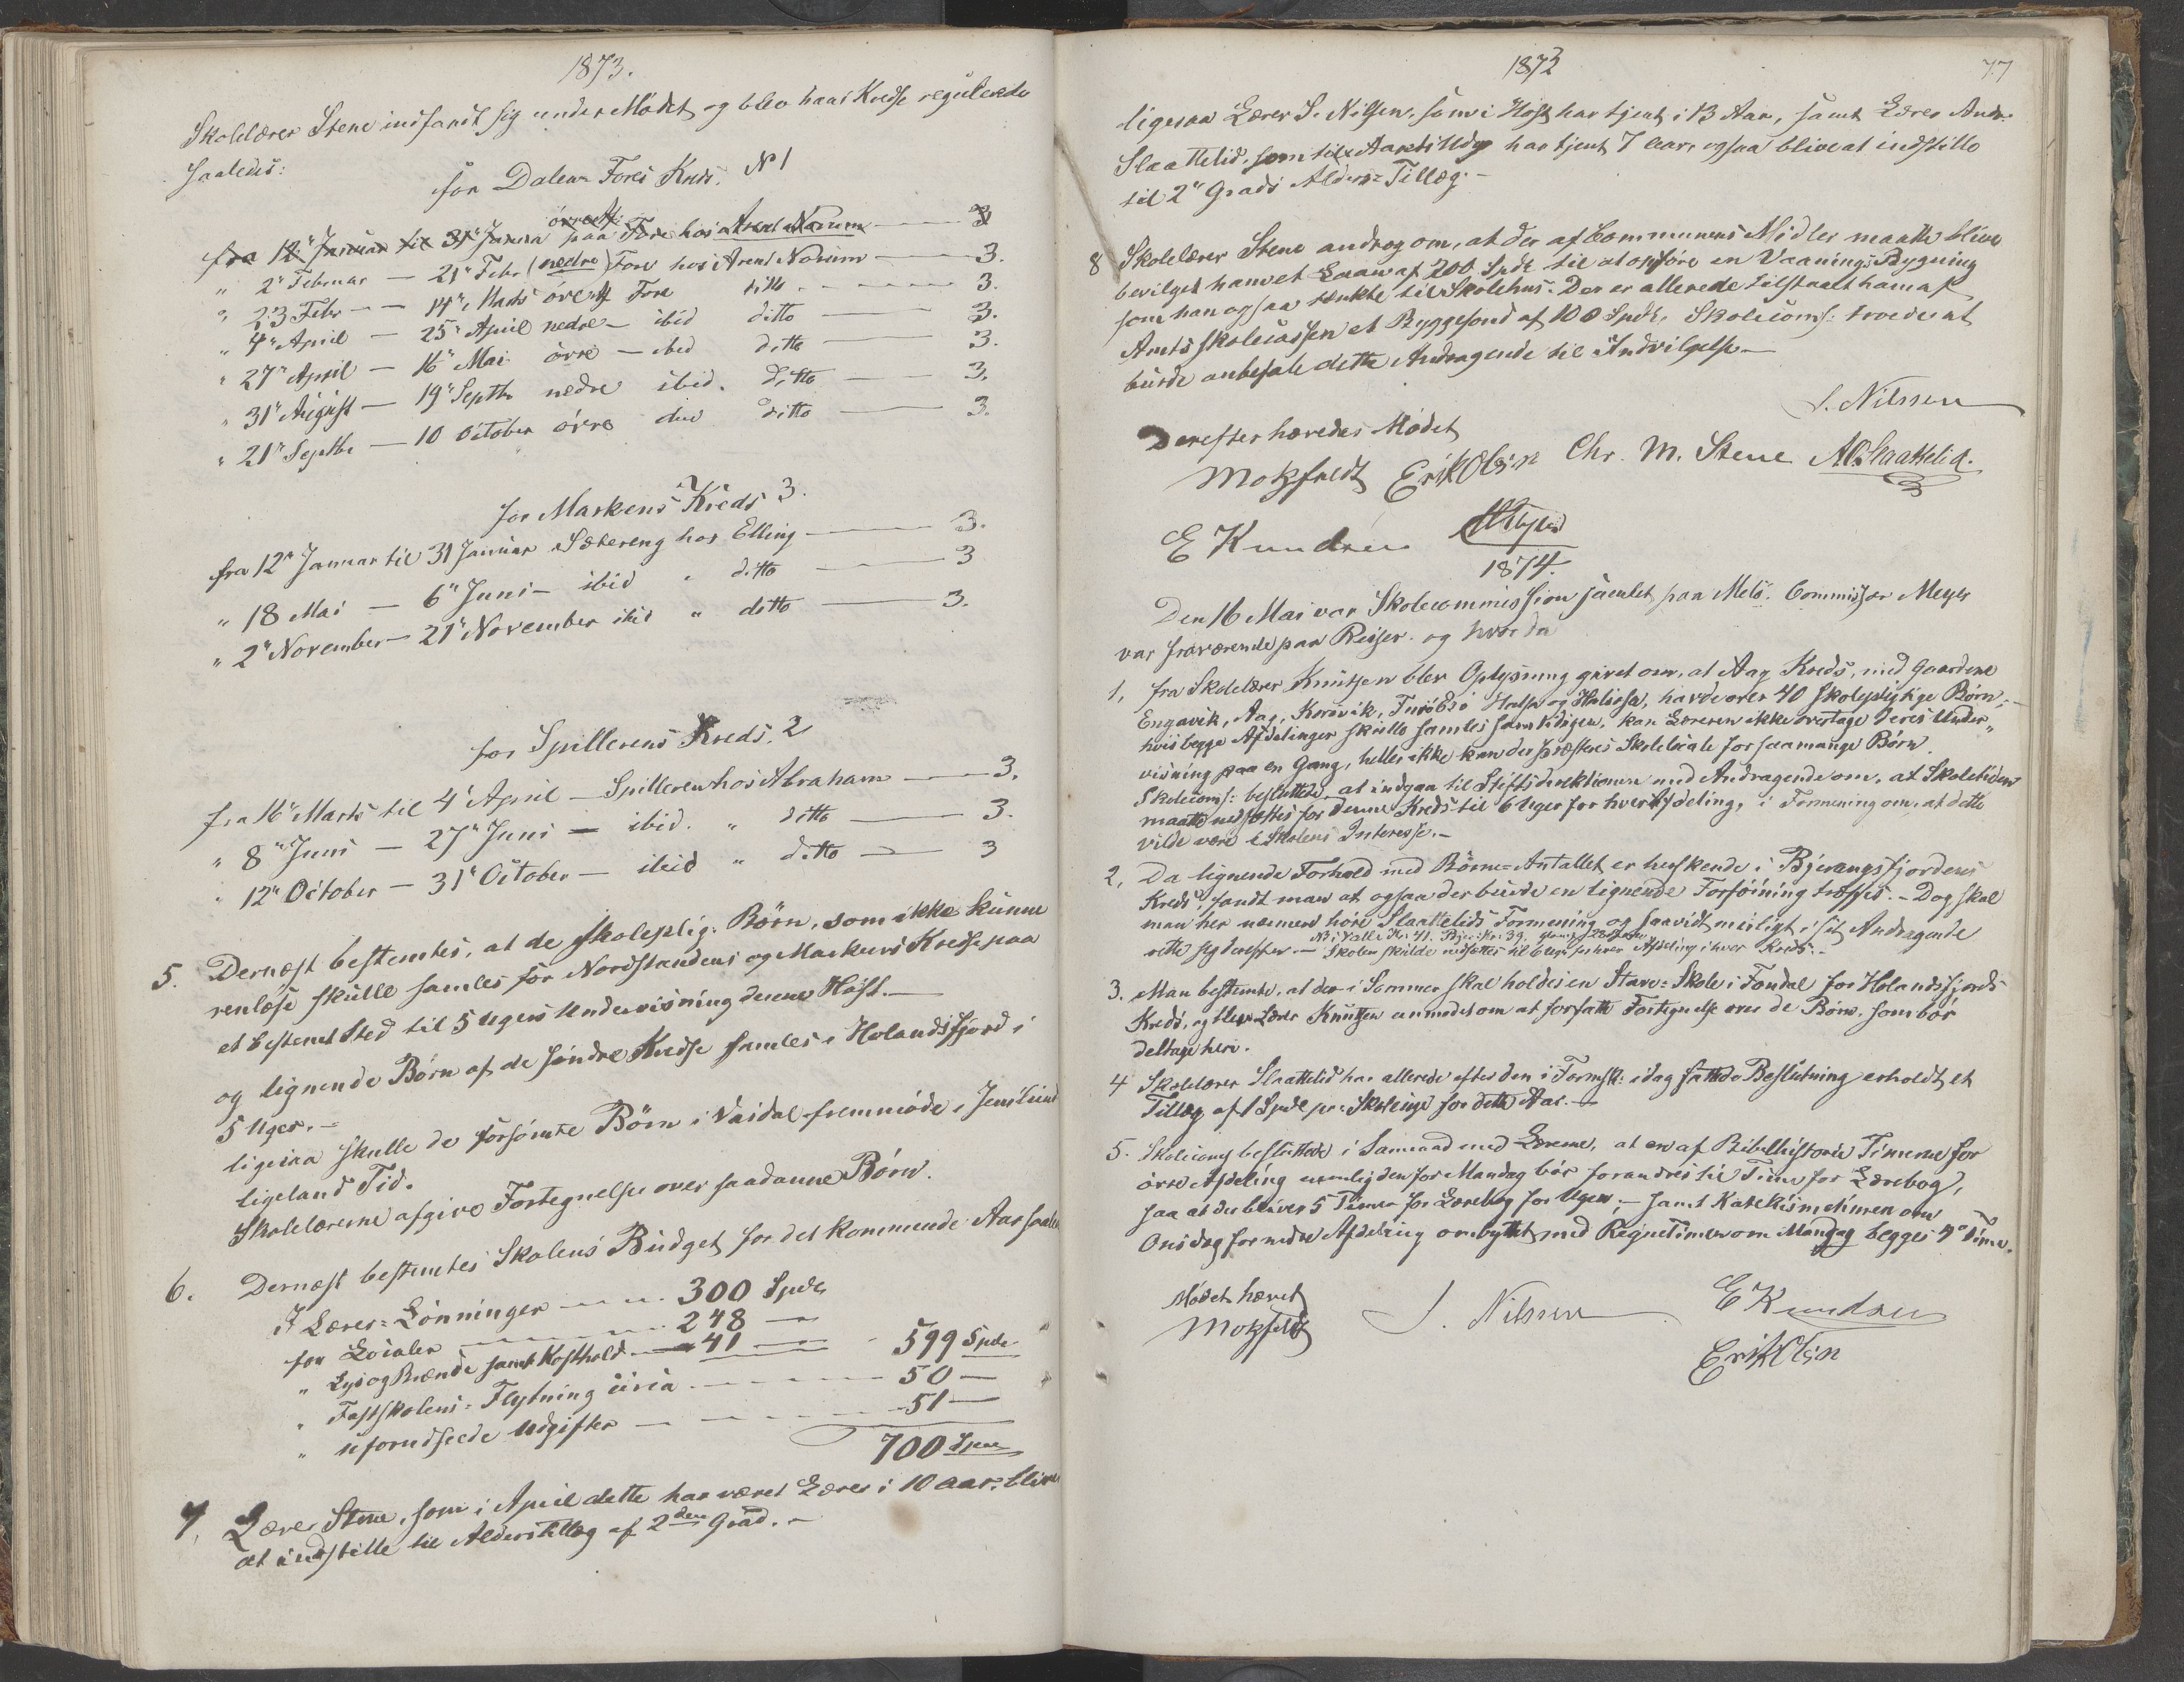 1873.
Skolelærer Stene indfandt sig under Mödet og blev hans Kredse regulerede
saaledes:
for Dalen-Fores Kreds. No 1
fra 12te Januar til 31te Januar övre Afd: paa Fore hos Arent Norum — 3
" 2den Februar — 21de Febr (nedre) Fore hos Arent Norum — 3.
" 23 Febr — 14de Marts övre Afd Fore ditto — 3.
" 7de April — 25de April nedre — ibid ditto — 3.
" 27de April — 16de Mai övre — ibid ditto — 3.
" 31te August — 19de Septbr nedre ibid. ditto — 3.
" 21de Septbr — 10 October övre ditto — 3.
for Markens Kreds 3.
fra 12te Januar til 31 Januar Sætereng hos Elling — 3.
" 18 Mai — 6te Juni — ibid " ditto — 3
" 2den November — 21de November ibid " ditto — 3.
for Spillerens Kreds. 2
fra 16de Marts til 4de April — Spilleren hos Abraham — 3.
" 8de Juni — 27de Juni — ibid. " ditto — 3.
" 12te October — 31te October — ibid " ditto — 3
5. Dernæst bestemtes, at de skoleplig: Börn, som ikke kunne
renlæse skulle samles for Nordstandens og Markens Kredse paa
et bestemt Sted til 5 Ugers Undervisning denne Höst. —
og lignende Börn af de söndre Kredse samles i Holandsfjord i
5 Uger. —
ligesaa skulle de forsömte Börn i Vasdal fremmöde i
ligeland Tid.
Skolelærerne afgive Fortegnelse over saadanne Börn.
6. Dernæst bestemtes Skolens Budget for det kommende Aar saale
Lærer-Lönninger — 300 Spdr
for Localer — 248 —
" Lys og Brænde samt Kosthold — 41 — 599 Spdr
" Fastskolens Flytning circa — 50 —
" uforudseede Udgifter — 51 —
700 Spdr
7. Lærer Stene, som i April dette har været Lærer i 10 Aar, bliver
at indstille til Alderstillæg af 2den Grad. —
1873 77
ligesaa Lærer S. Nilsen, som i Höst har tjent i 13 Aar, samt Lærer Andr.
Slaattelid, som har tjent 7 Aar, ogsaa blive at indstille
til 2den Grads Alders-Tillæg. —
8 Skolelærer Stene androg om, at der af Communens Midler maatte blive
bevilget ham et Laan af 200 Spdr til at opföre en Vaanings-Bygning
som han ogsaa tænkte til Skolehus. Der er allerede tilstaaet ham af
Amtsskolecassen et Byggefond af 100 Spdr, Skolecoms: troede at
burde anbefale dette Andragende til Indvilgelse —
S. Nilssen
Derefter hævedes Mödet
Motzfeldt Erik Olsen Chr. M. Stene A Slaattelid.
E Knudsen Meyer
1874.
Den 16 Mai var Skolecommission samlet paa Melö. Commissær Meyer
var fraværende paa Reiser. og hvorda
1, fra Skolelærer Knutsen blev Oplysning givet om, at Aag Kreds, med Gaardene
Engavik, Aag, Korsvik, Halsa og, havde over 40 skolepligtige Börn; —
hvis begge Afdelinger skulle samles samtidigen, kan Læreren ikke overtage deres Under-
visning paa en Gang, heller ikke kan der præsteres Skolelocale for saa mange Börn.
Skolecoms: besluttede at indgaa til Stiftsdirektionen med Andragende om, at Skoletiden
maatte nedsættes for denne Kreds til 6 Uger for hver Afdeling, i Formening om, at dette
vilde være i Skolens Interesse. —
2, Da lignende Forhold med Börne-Antallet er herskende i Bjerangsfjordens
Kreds, fandt man at ogsaa der burde en lignende Forföining træffes. — Dog skal
man her nærmere höre Slaattelids Formening og saavidt muligt i sit Andragende
rette sig derefter. — Skolen skulde nedsættes til 6 Uger for hver Afdeling i hver Kreds. —
3. Man bestemte, at der i Sommer skal holdes en Stave-Skole i Fondal for Holandsfjords
Kreds, og blev Lærer Knutsen anmodet om at forfatte Fortegnelse over de Börn, som bör
deltage heri.
4 Skolelærer Slaattelid har allerede efter den i Formsk: idag fattede Beslutning erholdt et
Tillæg af 1 Spdr pr: Skoleuge for dette Aar. —
5. Skolecoms besluttede i Samraad med Lærerne, at en af Bibelhistorie Timerne for
övre Afdeling nemlig den for Mandag bör forandres til Time for Lærebog,
saa at der bliver 5 Timer for Lærebog for Ugen; — samt Katekismetimen om
Onsdag for nedre Afdeling ombyttet med Regnetimen om Mandag begges 4de Time.
Mödet hævet
Motzfeldt S. Nilssen E Knudsen
Erik Olsen